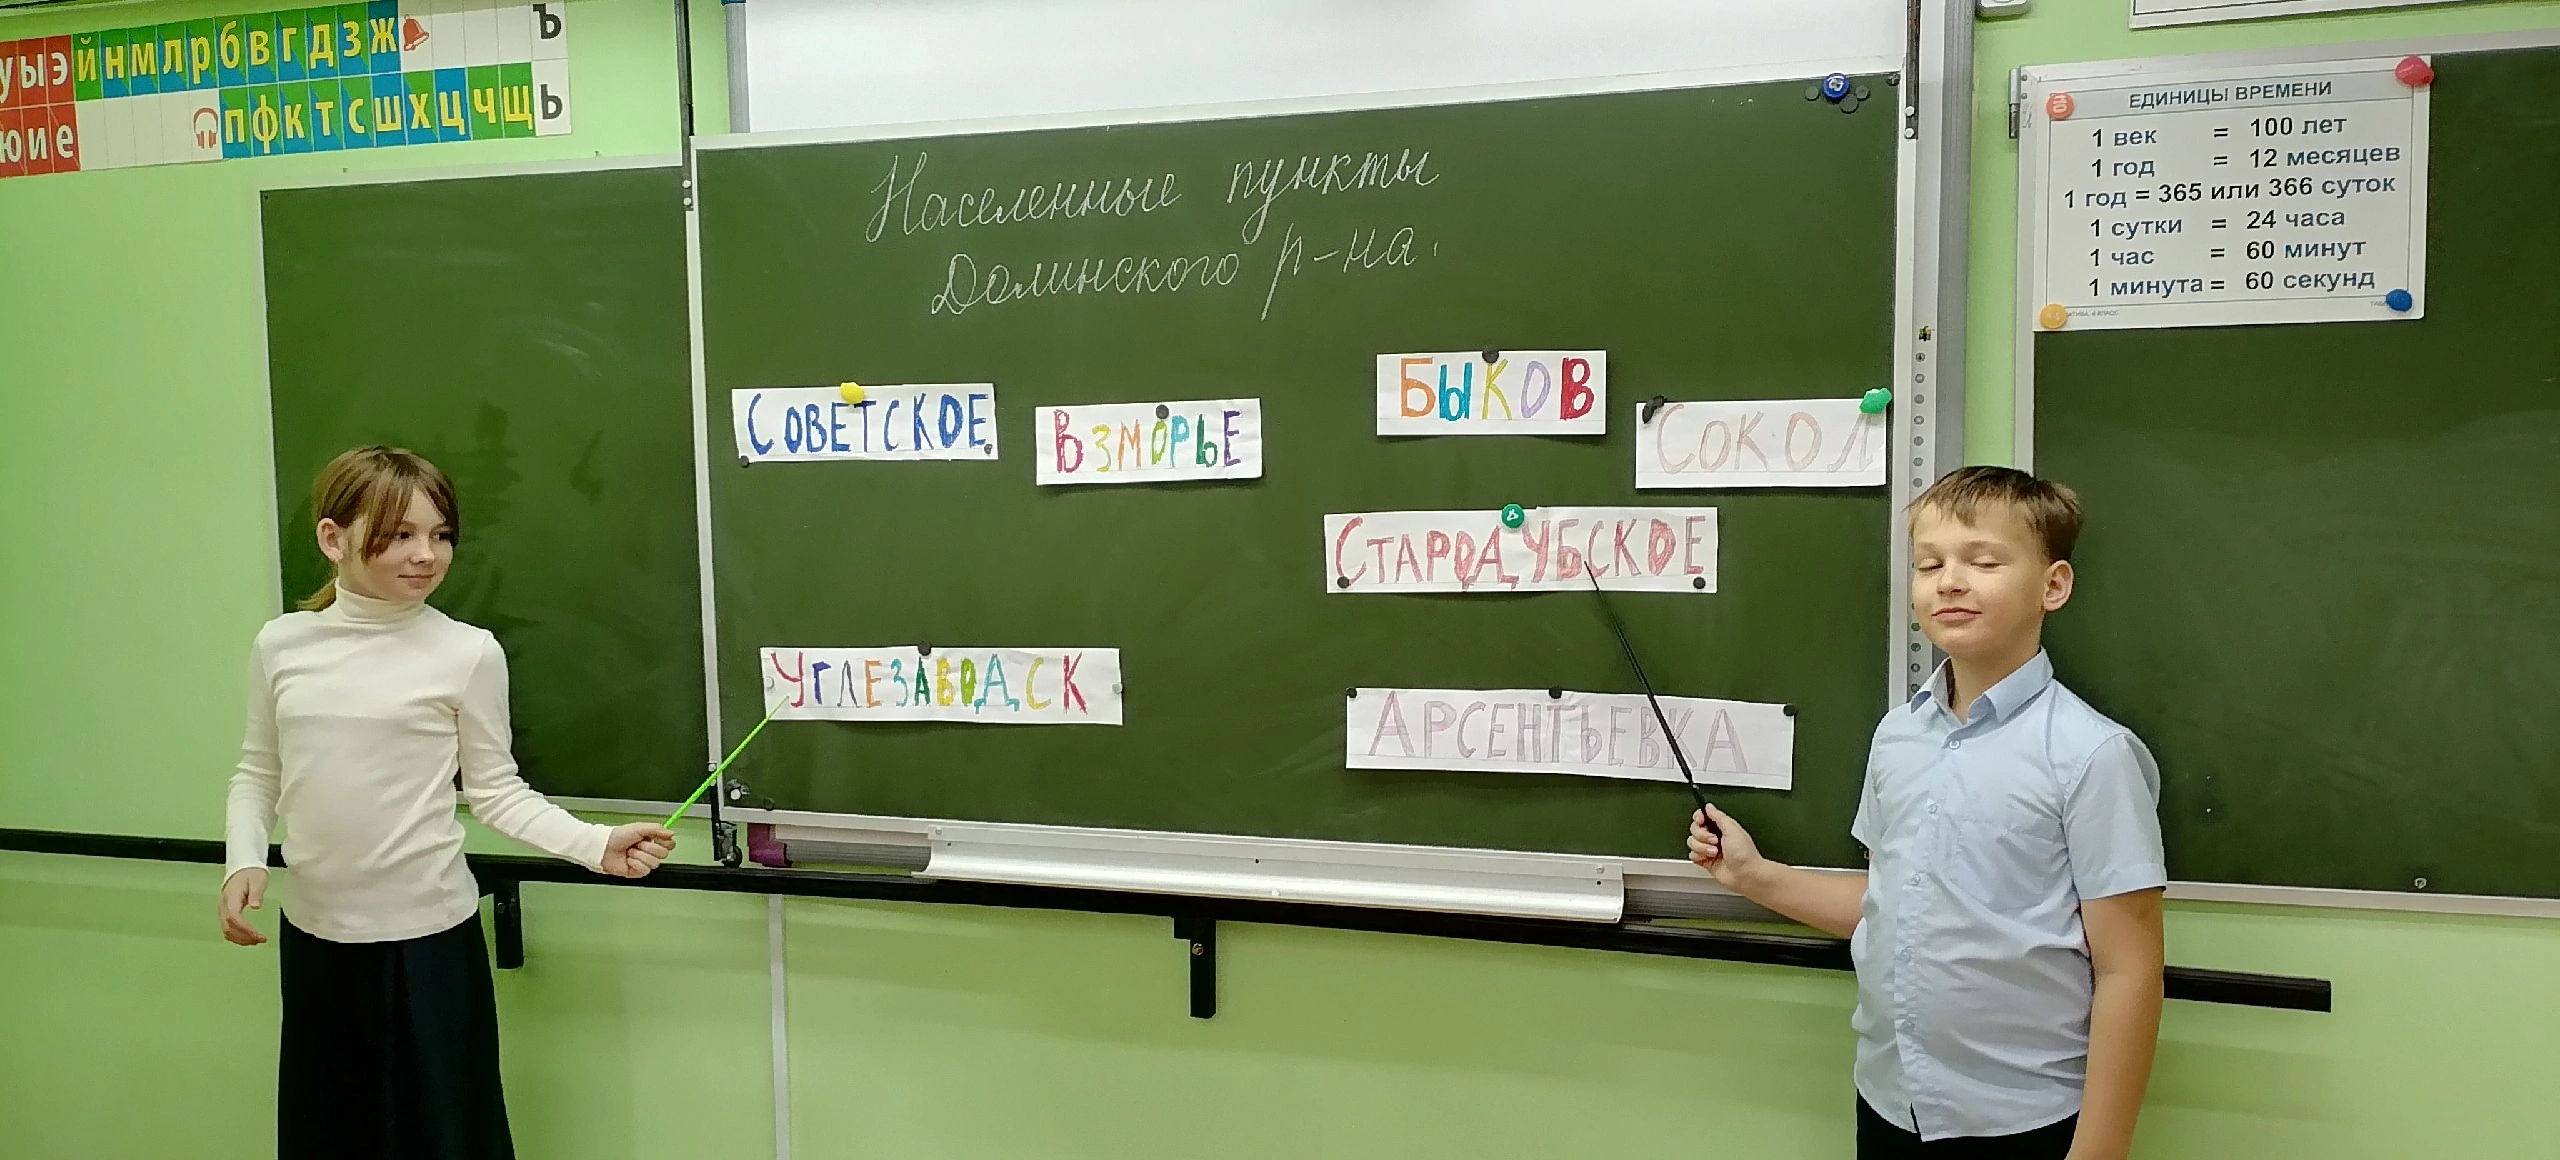 у ы э й н м л р б в г д з ж ъ
ю и е п ф к т с ш х ц ч щ ь
Населенные пункты
Долинского р-на.
СОВЕТСКОЕ
ВЗМОРЬЕ
БЫКОВ
СОКОЛ
СТАРОДУБСКОЕ
УГЛЕЗАВОДСК
АРСЕНТЬЕВКА
ЕДИНИЦЫ ВРЕМЕНИ
1 век = 100 лет
1 год = 12 месяцев
1 год = 365 или 366 суток
1 сутки = 24 часа
1 час = 60 минут
1 минута = 60 секунд